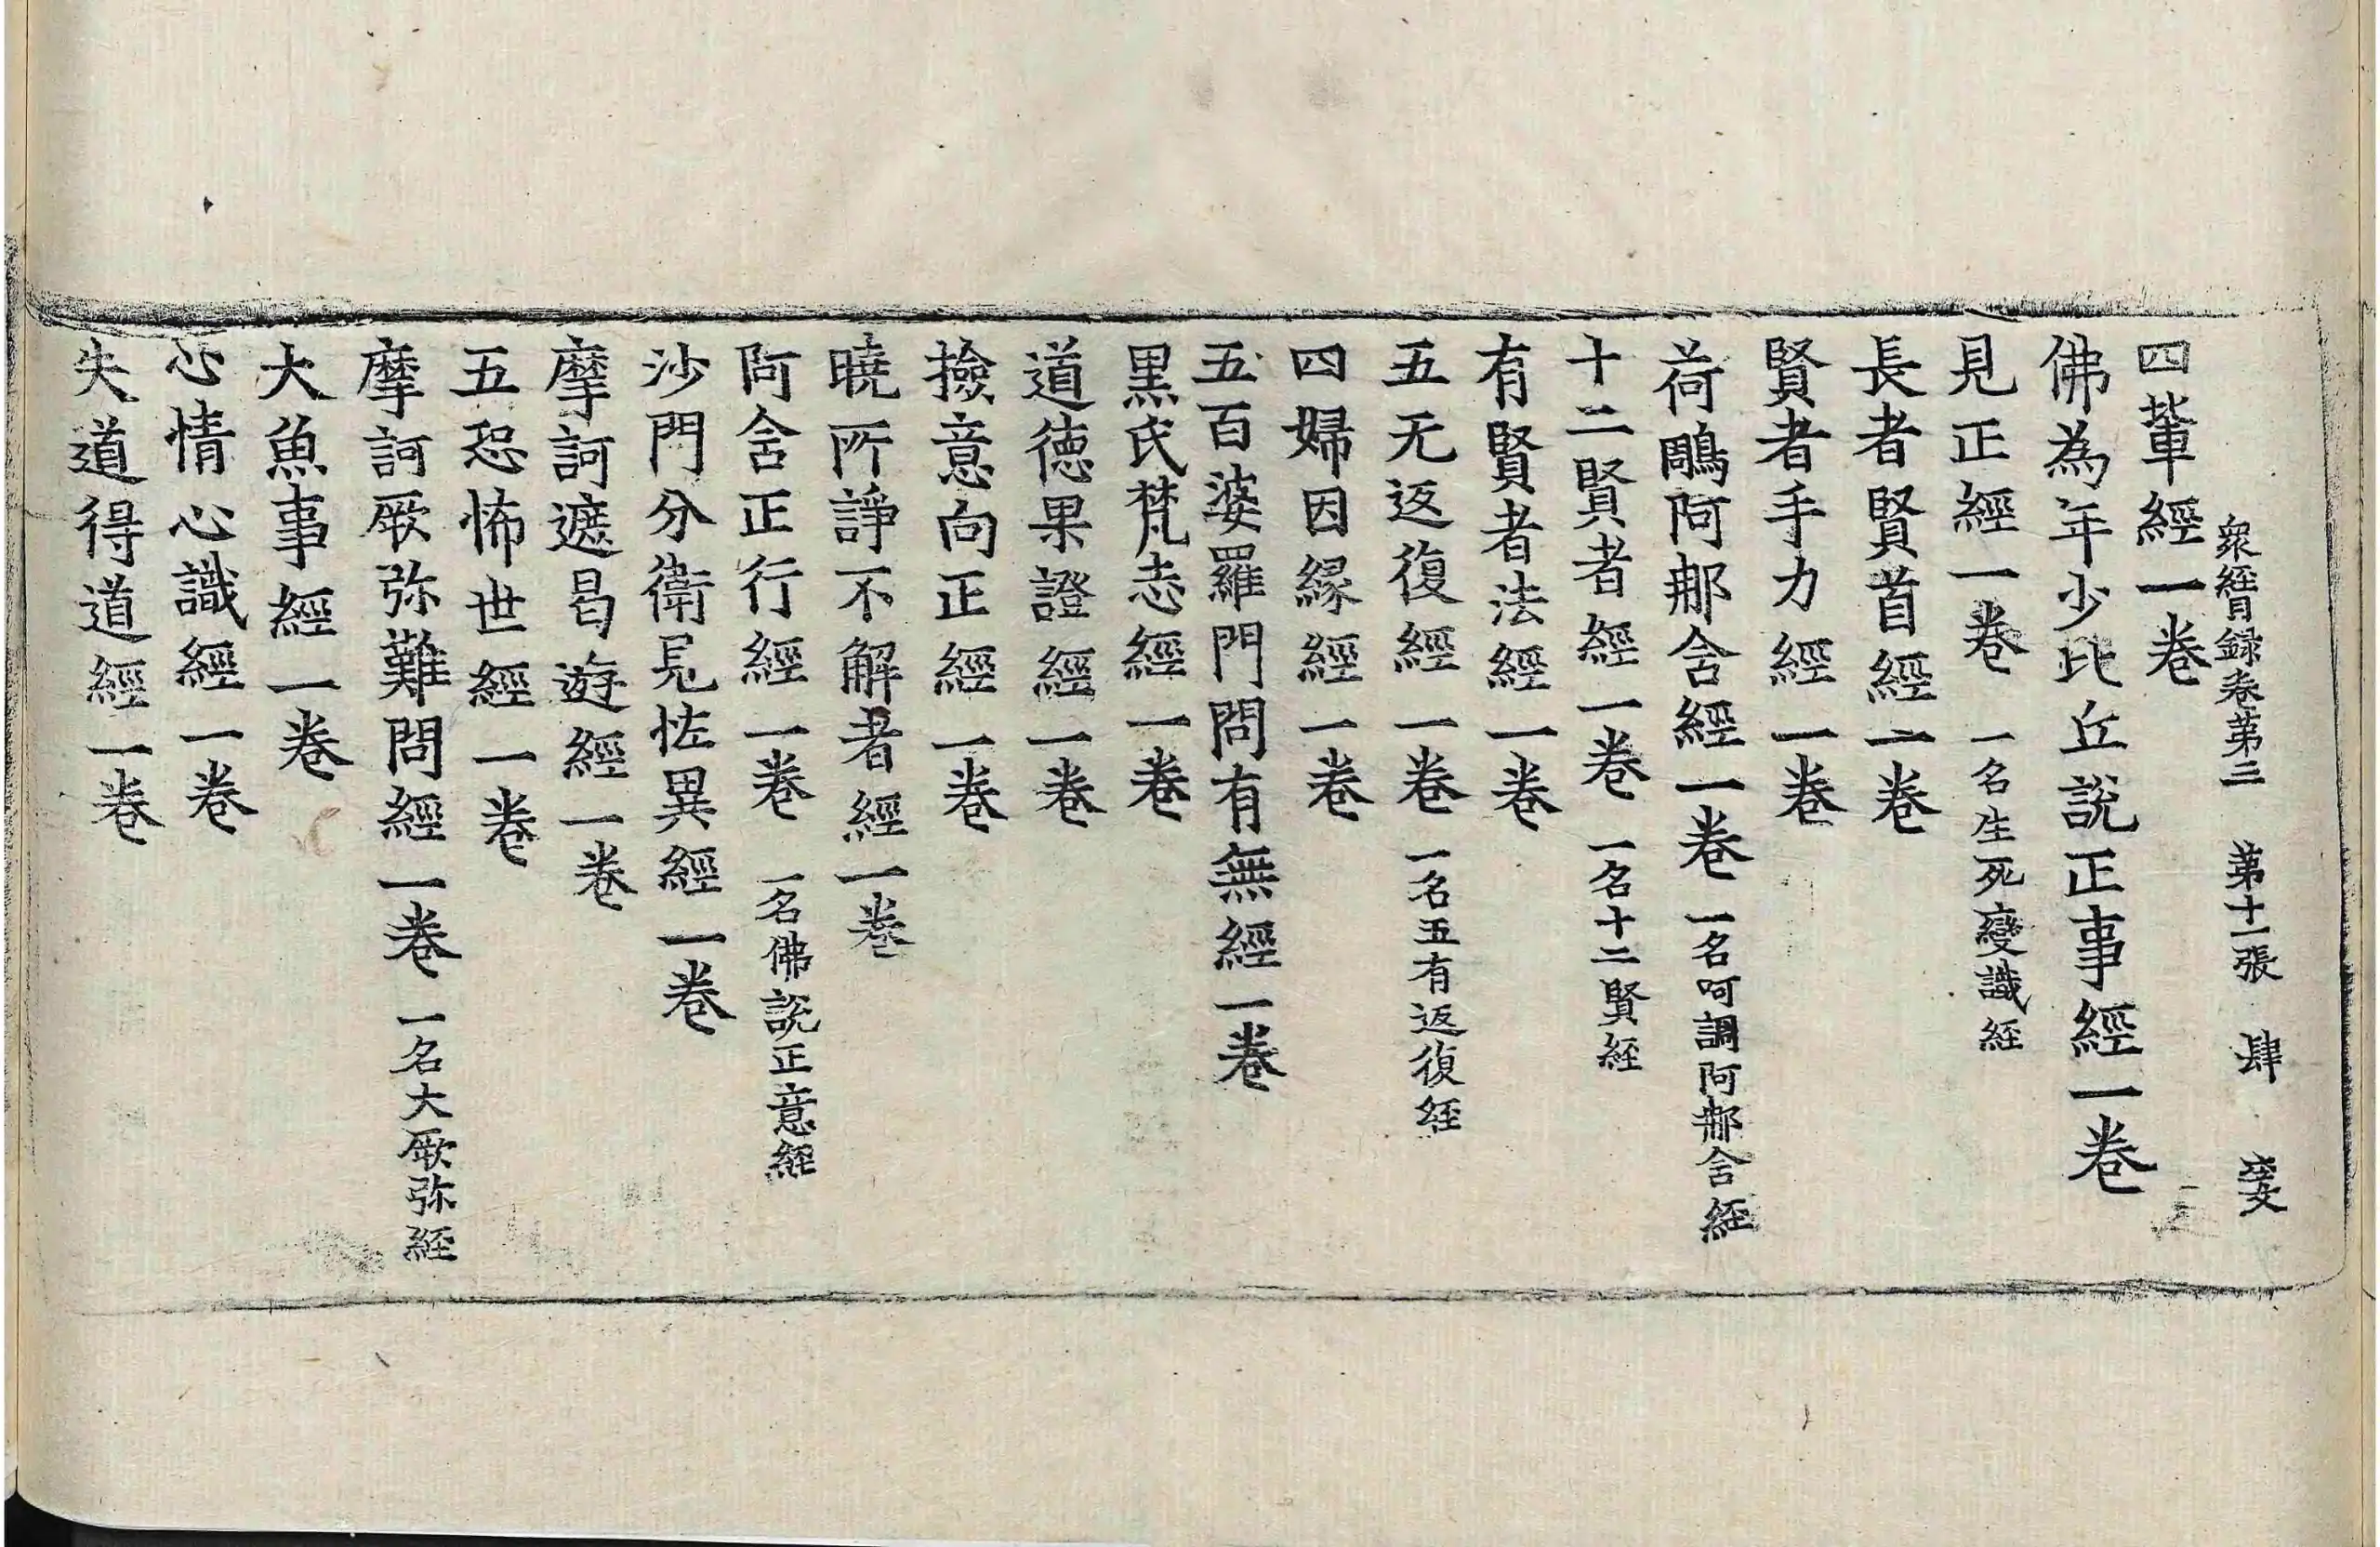 衆經目録卷苐三 苐十一張 肆
四輩經一卷
佛為年少比丘說正事經一卷
見正經一卷 一名生死變識経
長者賢首經一卷
賢者手力經一卷
荷鵰阿那含經一卷 一名呵調阿那含経
十二賢者經一卷 一名十二賢経
有賢者法經一卷
五无返復經一卷 一名五有返復経
四婦因縁經一卷
五百婆羅門問有無經一卷
黒氏梵志經一卷
道德果證經一卷
撿意向正經一卷
曉所諍不解者經一卷
阿含正行經一卷 一名佛說正意經
沙門分衛見怪異經一卷
摩訶遮曷遊經一卷
五恐怖世經一卷
摩訶厥弥難問經一卷 一名大厥弥経
大魚事經一卷
心情心識經一卷
失道得道經一卷